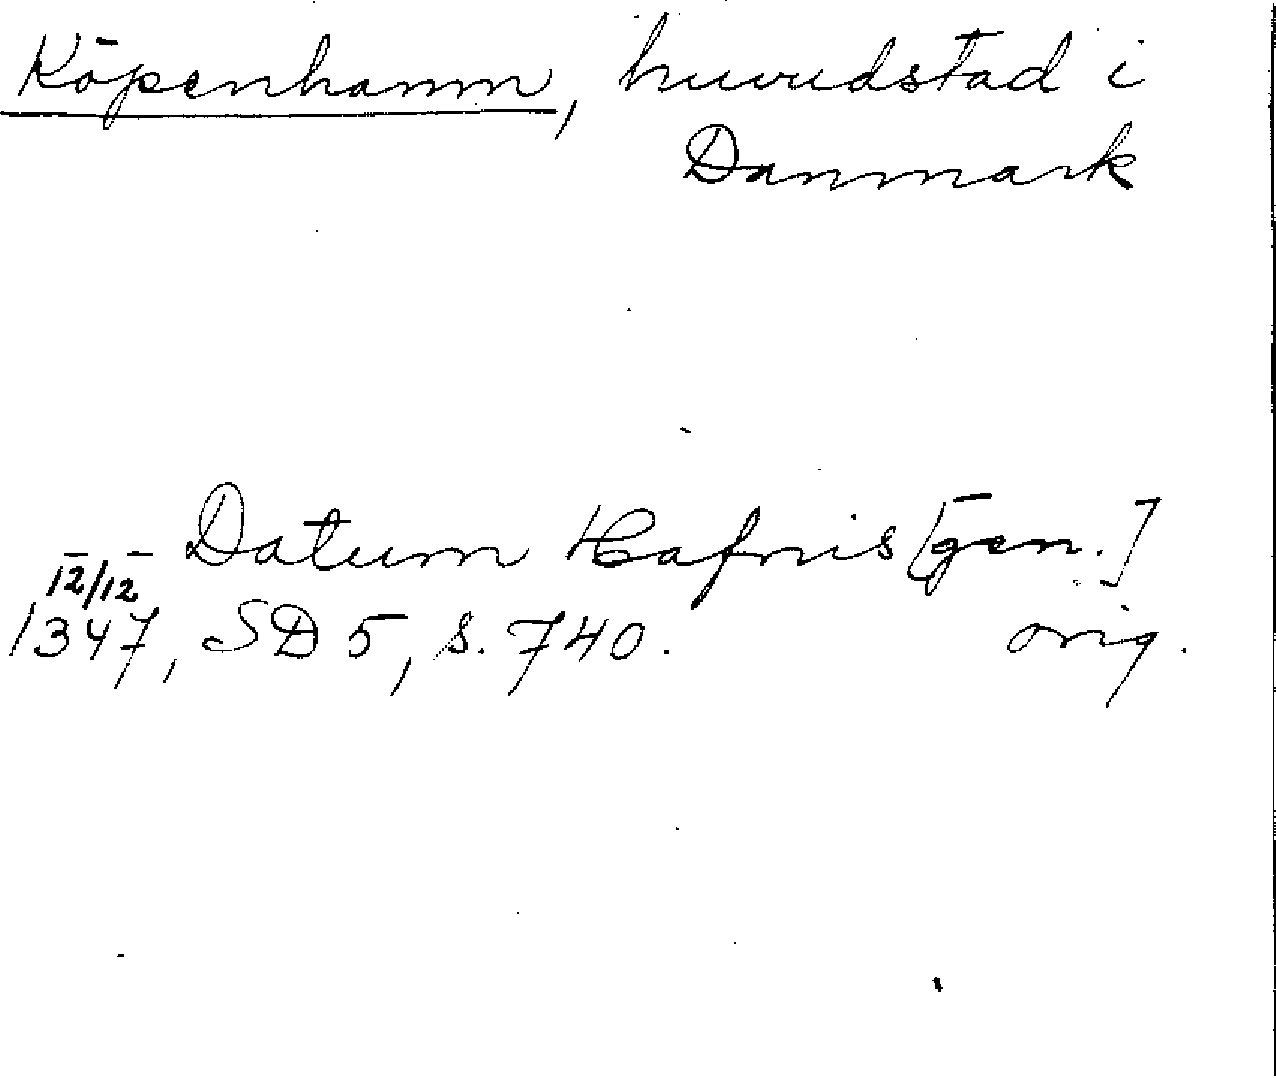 Köpenhamn, huvudstad i
Danmark
Datum Hafnis [gen.]
12/12
1347, SD 5, s. 740. orig.